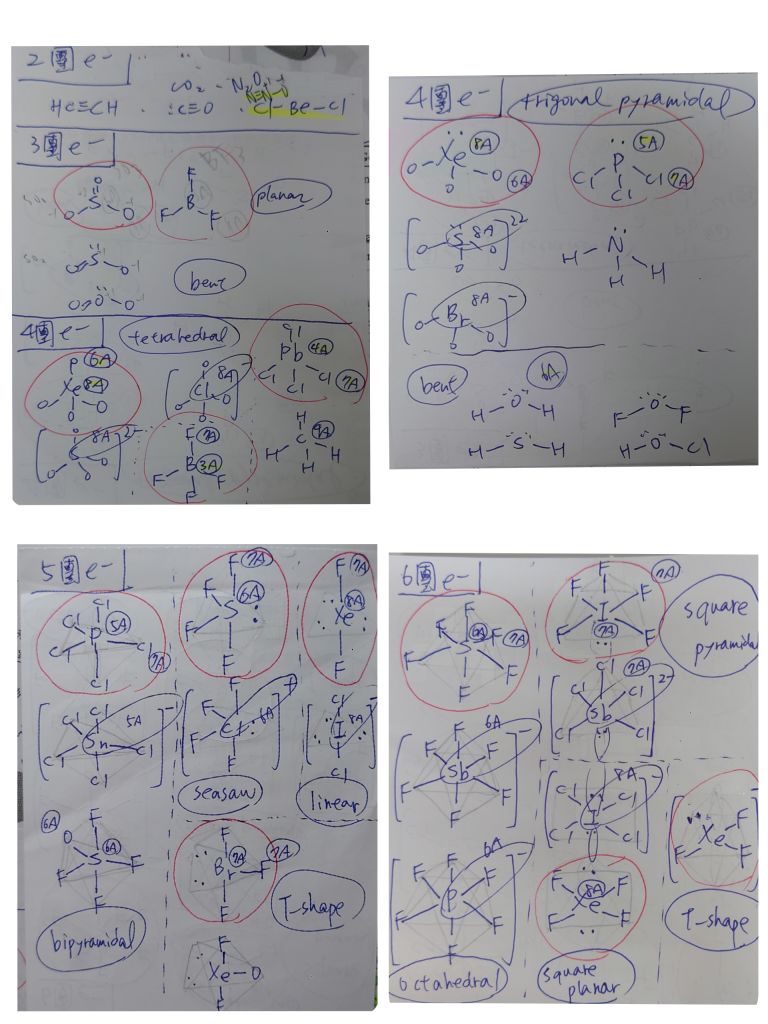 2團e-
CO₂ N₂O
N≡N-O
HC≡CH :C≡O Cl-Be-Cl
3團e-
O
O S O
F
B
F F
planar
O S O
O O O
bent
4團e-
tetrahedral
O 6A
Xe 8A
O O
O
O
Cl 8A
O O
O
-
Cl
Pb 4A
Cl Cl 7A
Cl
S 8A
O O
O
2-
F 7A
B 3A
F F
F
H
C 4A
H H
H
4團e-
trigonal pyramidal
Xe 8A
O O 6A
O
P 5A
Cl Cl 7A
Cl
S 8A
O O
O
2-
N
H H
H
Br 8A
O O
O
-
bent
6A
H O H
F O F
H S H
H O Cl
5團e-
Cl
Cl P 5A
Cl Cl 7A
Cl
F 7A
F S 6A
F
F
F
Xe 8A
F
Cl
Cl Sn 5A
Cl Cl
Cl
-
F
F Cl 6A
F
F
+
Cl
I 8A
Cl
-
seasaw
linear
6A O F
S 6A
F F
F
bipyramidal
F
Br 7A F 7A
F
T-shape
F
Xe-O
F
6團e-
F F
S 6A F 7A
F F
F
F 7A
F I F
F 7A F
square
pyramidal
Cl
Cl Sb Cl 7A
Cl Cl
2-
F F 6A
F Sb F
F F
-
Cl 8A Cl
I
Cl Cl
-
Xe F
F F
T-shape
F 6A
F P F
F F
F
-
octahedral
F 8A F
Xe
F F
square
planar